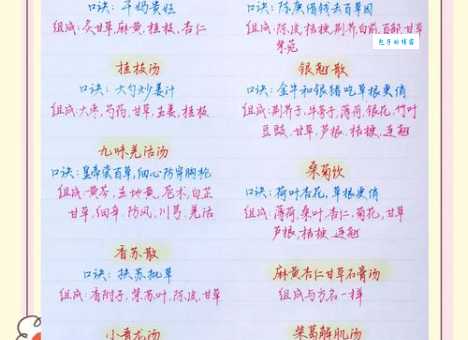 口诀：干奶贵姓
组成：炙甘草，麻黄，桂枝，杏仁
桂枝汤
口诀：大勺炒姜汁
组成：大枣，芍药，甘草，生姜，桂枝
九味羌活汤
口诀：皇帝藏百草，细心防穿胸枪
组成：黄芩，生地黄，苍术，白芷
甘草，细辛，防风，川芎，羌活
香苏散
口诀：扶苏批草
组成：香附子，紫苏叶，陈皮，甘草
小青龙汤
组成：陈皮，桔梗，荆芥，白前，百部，甘草
紫菀
包子的博客
银翘散
口诀：金牛和银猪吃草根更俏
组成：荆芥子，牛蒡子，薄荷，银花，竹叶
豆豉，甘草，芦根，桔梗，连翘
桑菊饮
口诀：荷叶杏花，草根更俏
组成：薄荷，桑叶，杏仁，菊花，甘草
芦根，桔梗，连翘
麻黄杏仁甘草石膏汤
组成与方名一样
柴葛解肌汤